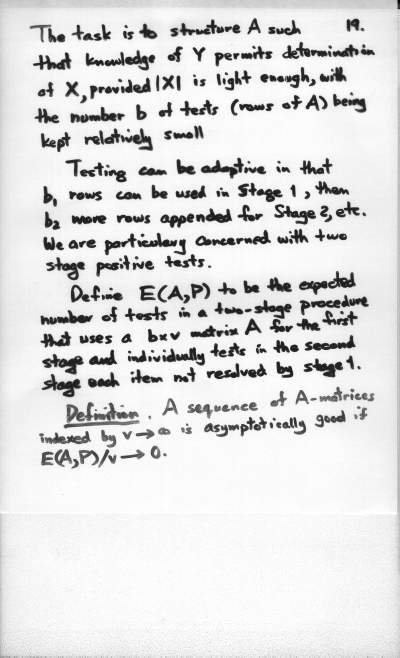 The task is to structure A such 19.
that knowledge of Y permits determination
of X, provided |X| is light enough, with
the number b of tests (rows of A) being
kept relatively small
Testing can be adaptive in that
b₁ rows can be used in Stage 1, then
b₂ more rows appended for Stage 2, etc.
We are particulary concerned with two
stage positive tests.
Define E(A,P) to be the expected
number of tests in a two-stage procedure
that uses a b×v matrix A for the first
stage and individually tests in the second
stage each item not resolved by stage 1.
Definition. A sequence of A-matrices
indexed by v→∞ is asymptotically good if
E(A,P)/v → 0.